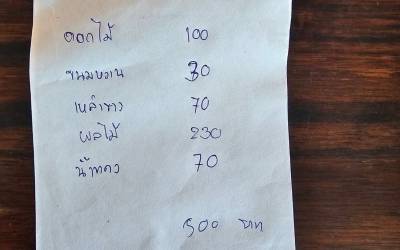 ดอกไม้ 100
ขนมหวาน 30
เหล้าขาว 70
ผลไม้ 230
น้ำแดง 70
500 บาท